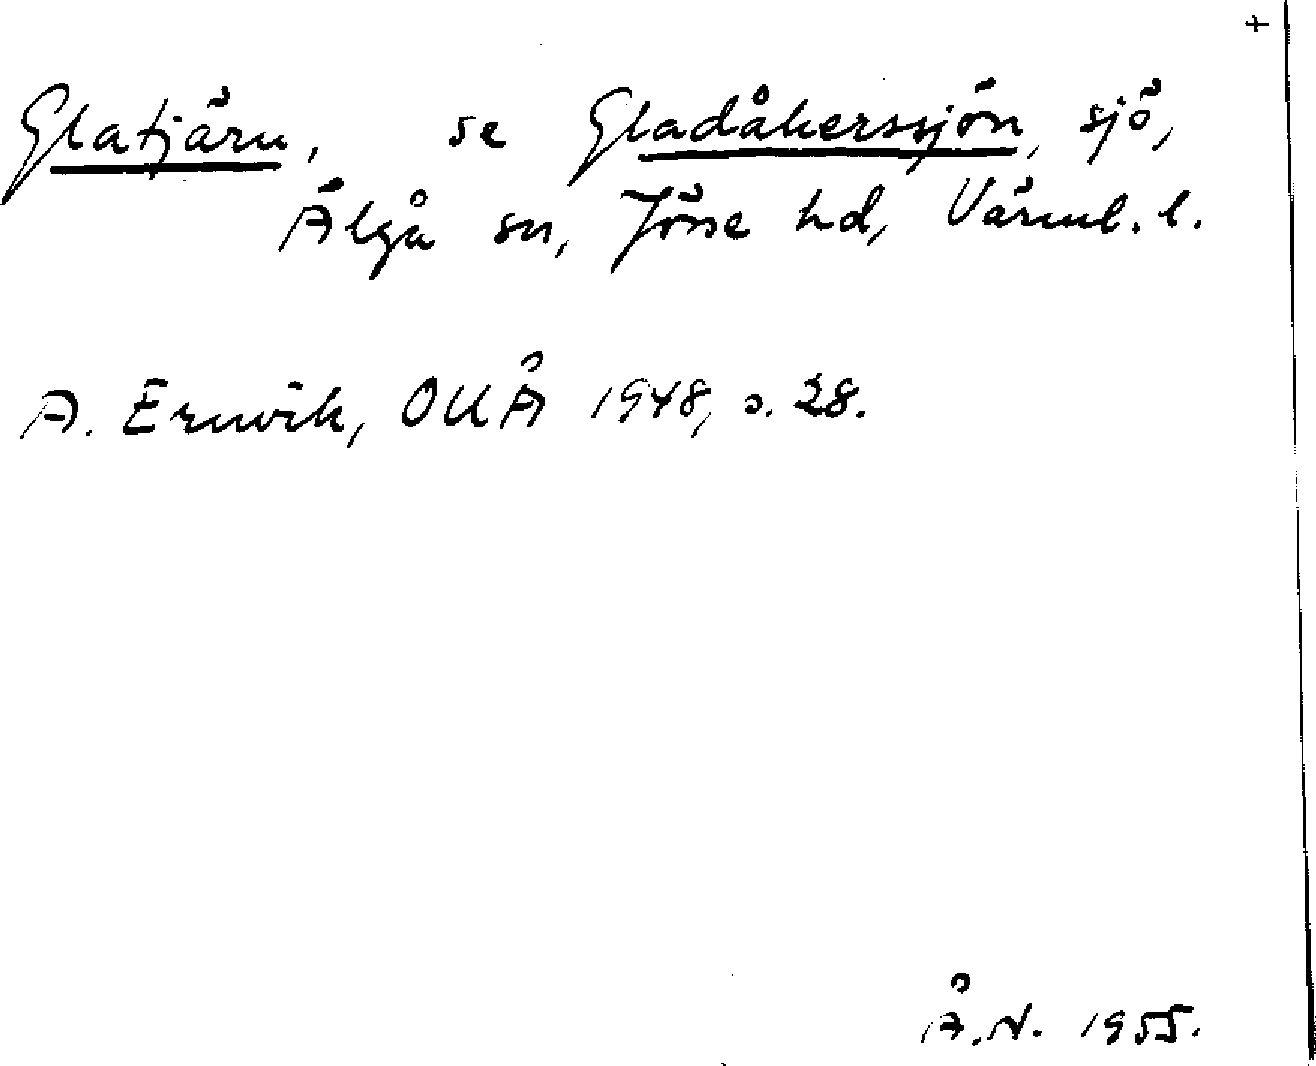 +
Glatjärn, se Gladåkerssjön, sjö,
Älgå sn, Jösse hd, Värml. l.
A. Ernvik, OUÅ 1948, s. 28.
Å.N. 1955.